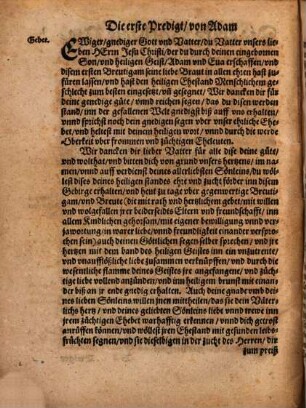 Die erste Predigt/ von Adam
Gebet.
EWiger/ gnediger Gott vnd Vatter/ du Vatter vnsers lie
ben HErrn Jesu Christi/ der du durch deinen eingebornen
Son/ vnd heiligen Geist/ Adam vnd Eua erschaffen/ vnd
disem ersten Breutigam seine liebe Braut in allen ehren hast zuge
füren lassen/ vnd hast den heiligen Ehestand Menschlichem ge
schlecht zum besten eingesetzt/ vñ gesegnet/ Wir dancken dir für
deine genedige güte/ vnnd reichen segen/ das du disen werden
stand/ inn der gefallenen Welt gnedigst biß auff vns erhalten/
vnnd sprichst noch dein gnedigen segen vber vnser ehrliche Ehe
bet/ vnd heltest mit deinem heiligen wort/ vnnd durch die werde
Oberkeit vber frommen vnd züchtigen Eheleuten.
Wir dancken dir lieber Vatter für alle dise deine güte/
vnd wolthat/ vnd bitten dich von grund vnsers hertzens/ im na-
men/ vnnd auff verdienst deines allerliebsten Sönleins/ du wö
lest dises deines heiligen standes ehr vnd zucht förder inn disem
Gebirge erhalten/ vnd heut zu tage vber gegenwertige Breuti
gam/ vnd Breute (die mit rath vnd hertzlichem gebet/ mit willen
vnd wolgefallen jrer beiderseidts Eltern vnd freundschafft/ inn
allem Kindlichen gehorsam/ mit eigener bewilligung vnnd ver
jawortung/ in warer liebe/ vnnd freundligkeit einander verspro
chen sein) auch deinen Göttlichen segen selber sprechen/ vnd jre
hertzen mit dem band des heiligen Geistes inn ein ander/
vnd vnauffhörliche liebe zusammen verknüpffen/ vnd durch die
wesentliche flamme deines Geistes jre angefangene/ vnd züch
tige liebe vollend anzünden/ vnd inn heiligem brunst mit einan-
der biß an jr ende gnedig erhalten. Auch deine gnade vnnd dei-
nes lieben Sönleins willen jnen mittheilen/ das sie dein Väter
lichs hertz/ vnd deines geliebten Sönleins liebe vnnd trewe inn
jrem züchtigen Ehebet warhafftig erkennen/ vnnd dich getrost
anrüffen können/ vnd wöllest jren Ehestand mit gesunden leibs
früchten segnen/ vnd sie dieselbigen in der zucht des Herren/ dir
zum preiß